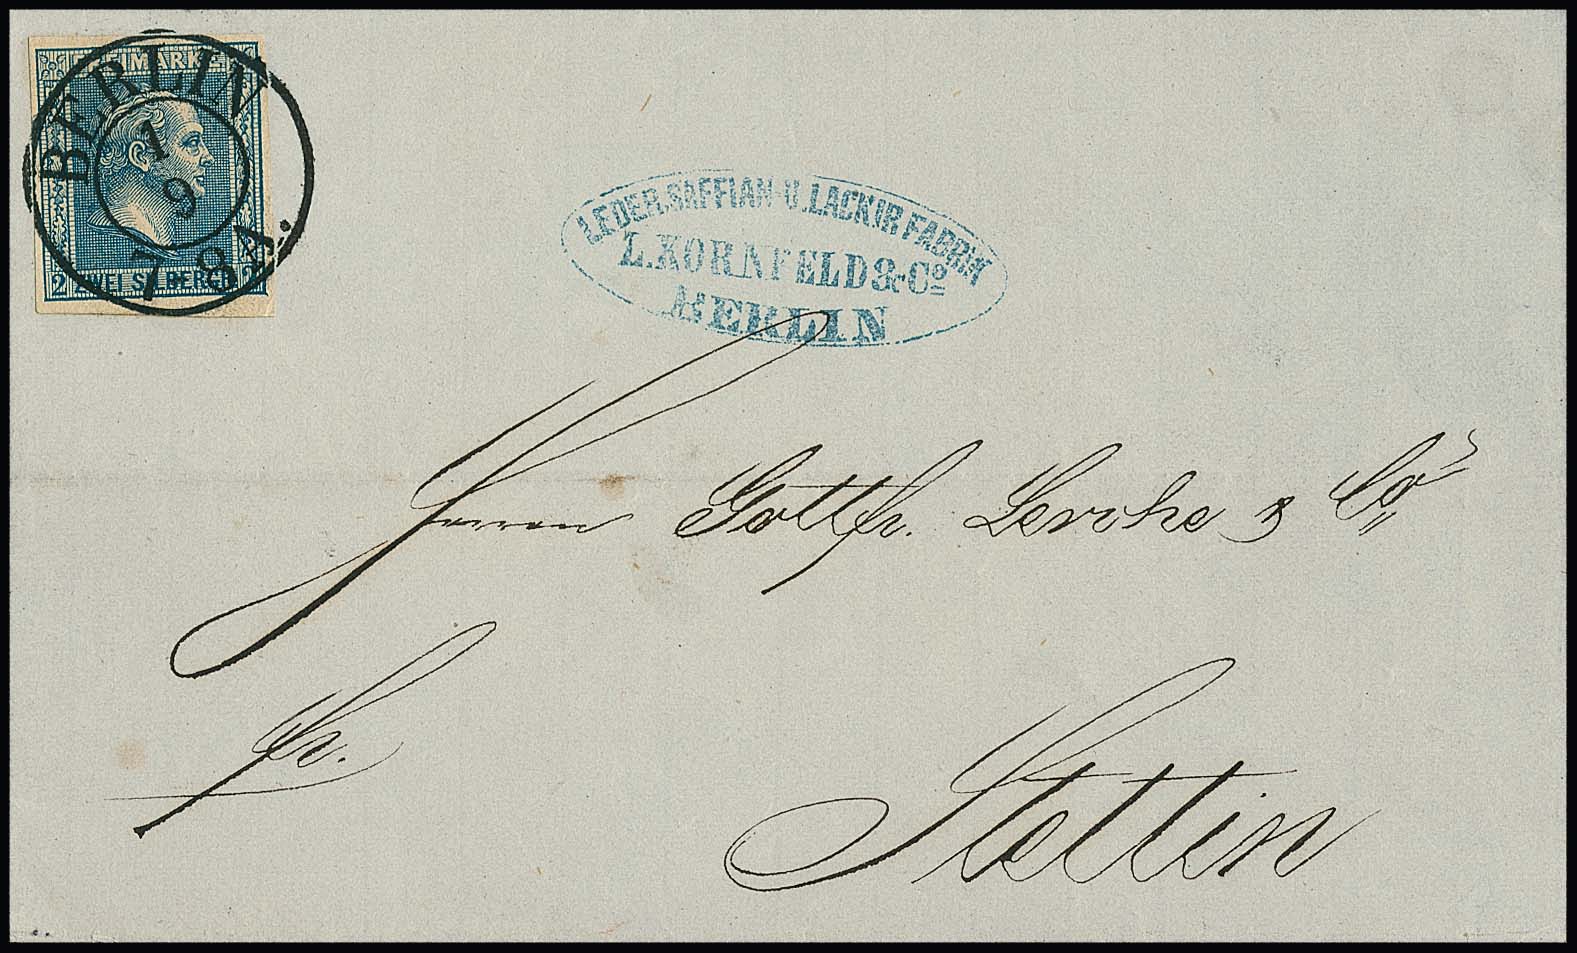 FREIMARKE
2 ZWEI SILBERGR. 2
BERLIN
1
9
7 8A.
LEDER, SAFFIAN- U. LACKIR FABRIK
L. KORNFELD & Co
BERLIN
Herren Gottfr. Lerche & Co,,
fr.
Stettin